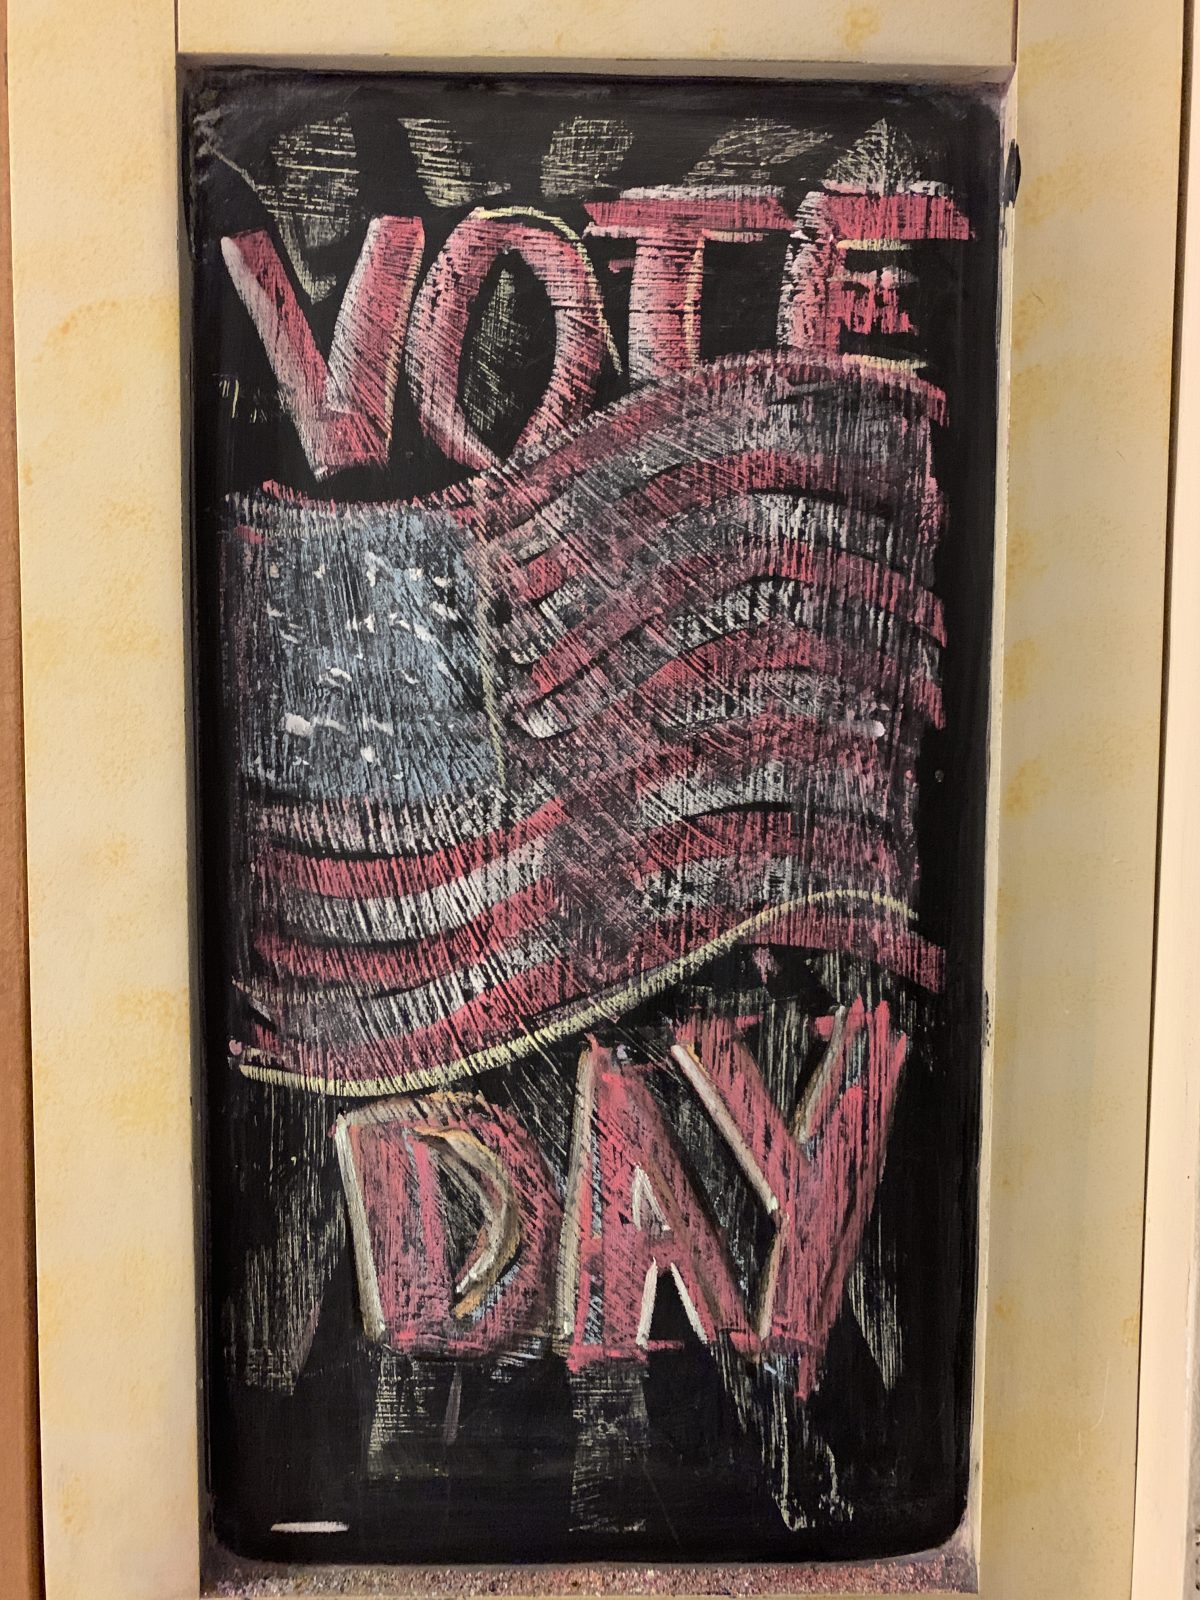 VOTE
DAY